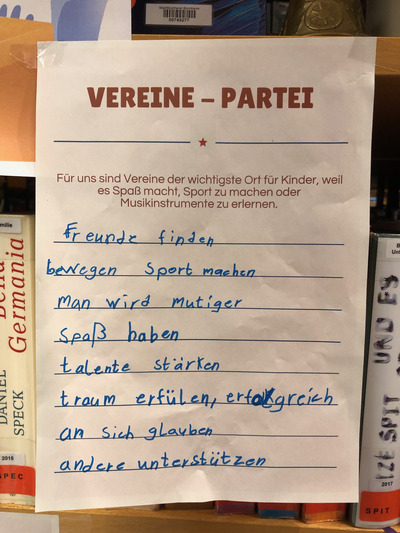 VEREINE – PARTEI
Für uns sind Vereine der wichtigste Ort für Kinder, weil
es Spaß macht, Sport zu machen oder
Musikinstrumente zu erlernen.
Freunde finden
bewegen Sport machen
man wird mutiger
Spaß haben
talente stärken
traum erfülen, erfolgreich
an sich glauben
andere unterstützen
Germania
DANIEL
SPECK
2016
SPEC
UND ES
IZE SPIT
2017
SPIT